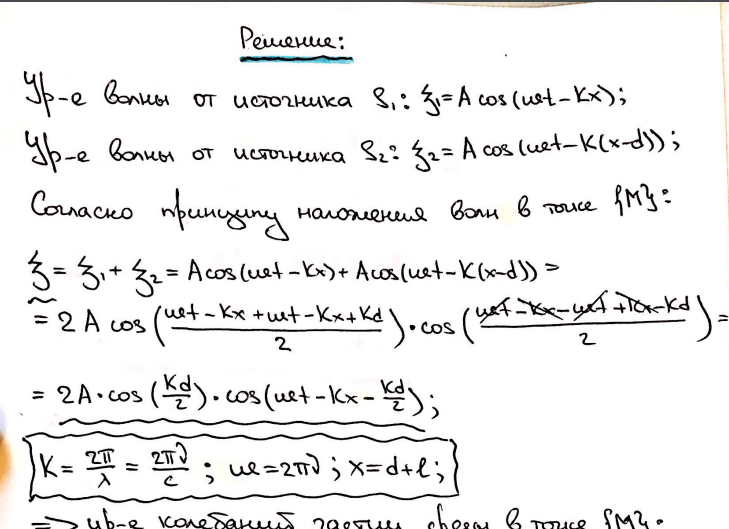 Решение:
Ур-е волны от источника S₁: ξ₁=A cos(ωt-Kx);
Ур-е волны от источника S₂: ξ₂=A cos(ωt-K(x-d));
Согласко принципу наложения волн в точке {M}:
ξ = ξ₁ + ξ₂ = A cos(ωt-Kx)+A cos(ωt-K(x-d)) =
= 2A cos((ωt-Kx+ωt-Kx+Kd)/2)·cos((ωt-Kx-ωt+Kx-Kd)/2) =
= 2A·cos(Kd/2)·cos(ωt-Kx-Kd/2);
K= 2π/λ = 2πν/c ; ω=2πν; x=d+ℓ;
=> ур-е колебаний частиц среды в точке {M}: